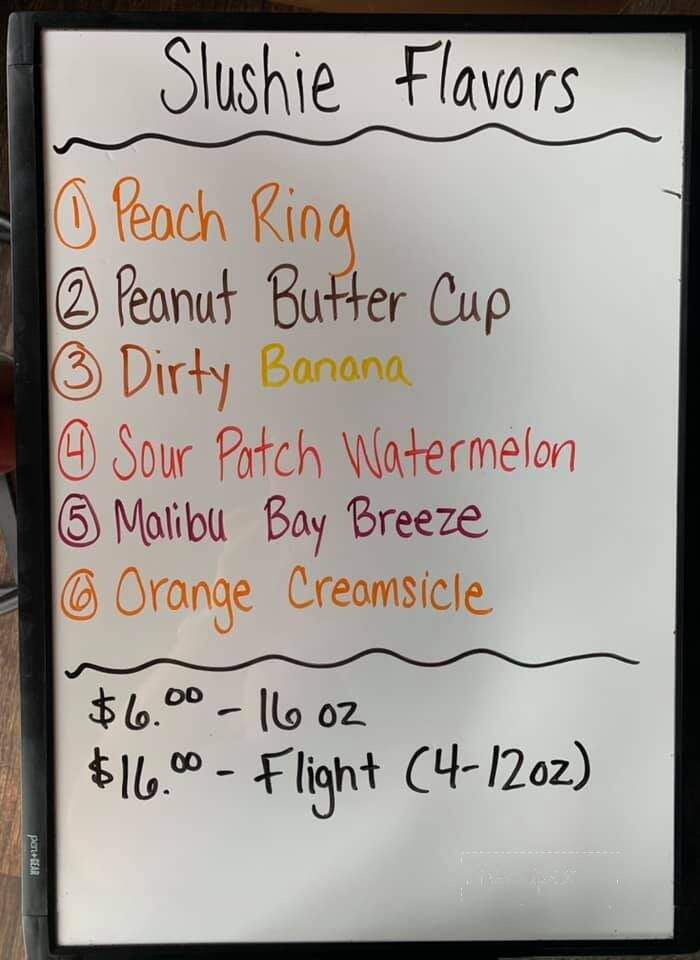 Slushie Flavors
1 Peach Ring
2 Peanut Butter Cup
3 Dirty Banana
4 Sour Patch Watermelon
5 Malibu Bay Breeze
6 Orange Creamsicle
$6.00 - 16 oz
$16.00 - Flight (4-12oz)
pen+GEAR